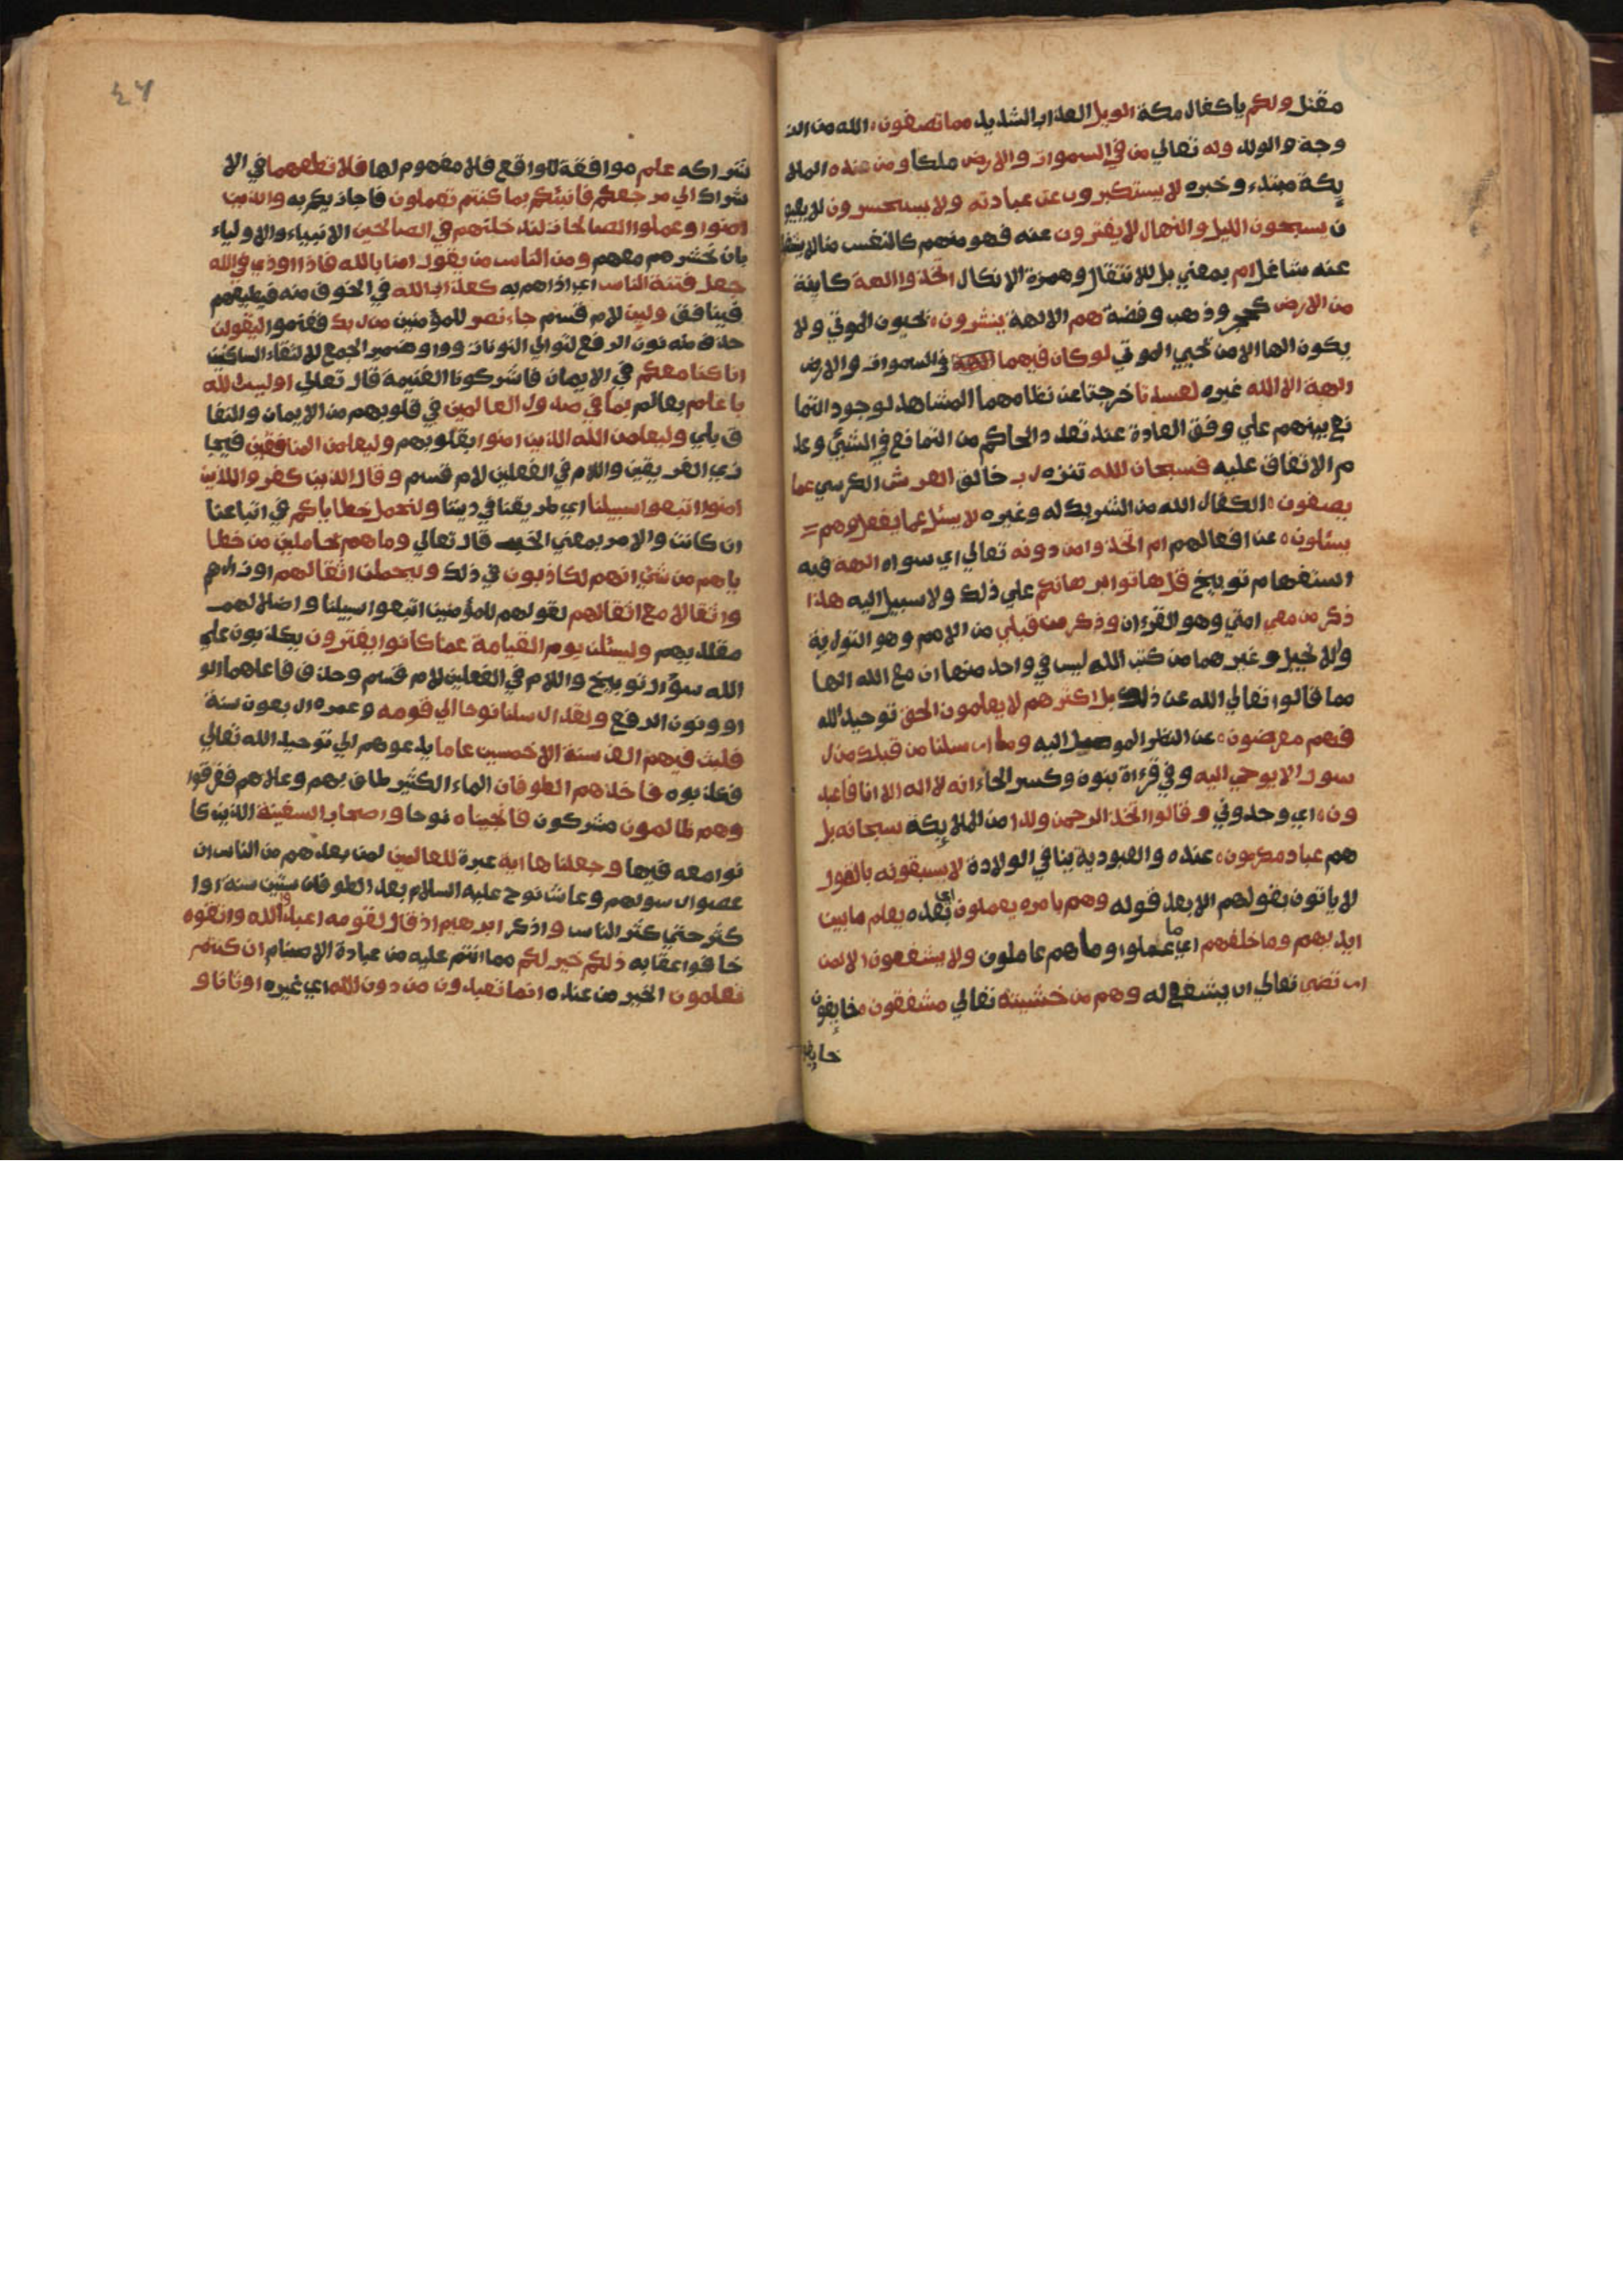 مقتل ولكم ياكفار مكة الويل العذاب الشديد مما تصفون الله من الز
وجة والولد وله تعالي من في السموات والارض ملكا ومن عنده الملا
يكة مبتدء وخبره لا يستكبرون عن عبادته ولا يستحسرون لا يعيو
ن يسبحون الليل والنهار لا يفترون عنه فهو منهم كالنفس منا لا يشغلنا
عنه شاغل ام بمعني بل للانتقال وهمزة الانكار اتخذوا الهة كاينة
من الارض كحجر وذهب وفضة هم الالهة ينشرون يحيون الموتي ولا
يكون الها الا من يحيي الموتي لو كان فيهما الهة في السموات والارض
الهة الا الله غيره لفسدتا خرجتا عن نظامهما المشاهد لوجود التما
نع بينهم علي وفق العادة عند تعدد الحاكم من التمانع في الشيئ وعد
م الاتفاق عليه فسبحان الله تنزه رب خالق العرش الكرسي عما
يصفون الكفار الله من الشريك له وغيره لا يسئل عما يفعل وهم
يسئلون عن افعالهم ام اتخذوا من دونه تعالي اي سواه الهة فيه
استفهام توبيخ قل هاتوا برهانكم علي ذلك ولا سبيل اليه هذا
ذكر من معي امتي وهو القرءان وذكر من قبلي من الامم وهو التورية
والانجيل وغيرهما من كتب الله ليس في واحد منها ان مع الله الها
مما قالوا تعالي الله عن ذلك بل اكثرهم لا يعلمون الحق توحيد الله
فهم معرضون عن النظر الموصل اليه وما ارسلنا من قبلك من ر
سول الا يوحي اليه وفي قرءاة بنون وكسر الحاء انه لا اله الا انا فاعبد
ون اي وحدوني وقالوا اتخذ الرحمن ولدا من الملايكة سبحانه بل
هم عباد مكرمون عنده والعبودية ينافي الولادة لا يسبقونه بالقول
لا ياتون بقولهم الا بعد قوله وهم بامره يعملون اي بعده يعلم ما بين
ايديهم وما خلفهم اي ما عملوا وما هم عاملون ولا يشفعون الا لمن
ارتضي تعالي ان يشفع له وهم من خشيته تعالي مشفقون خايفون
خايفو
٤٦
شراكه علم موافقة للواقع فلا مفهوم لها فلا تطعهما في الا
شراك الي مرجعكم فانبئكم بما كنتم تعملون فاجازيكم به والذين
امنوا وعملوا الصالحات لندخلنهم في الصالحين الانبياء والاولياء
بان نحشرهم معهم ومن الناس من يقول امنا بالله فاذا اوذي في الله
جعل فتنة الناس اي اذاهم به كعذاب الله في الخوف منه فيطيعهم
فينافق ولين لام قسم جاء نصر للمؤمنين من ربك فغنموا ليقولن
حذف منه نون الرفع لتوالي النونات وواو ضمير الجمع للالتقاء الساكنين
انا كنا معكم في الايمان فاشركونا الغنيمة قال تعالي اوليس الله
باعلم بعالم بما في صدور العالمين في قلوبهم من الايمان والنفا
ق بلي وليعلمن الله الذين امنوا بقلوبهم وليعلمن المنافقين فيجا
زي الفريقين واللام في الفعلين لام قسم وقال الذين كفروا للذين
امنوا اتبعوا سبيلنا اي طريقنا في ديننا ولنحمل خطاياكم في اتباعنا
ان كانت والامر بمعني الخبر قال تعالي وما هم بحاملين من خطا
ياهم من شئ انهم لكاذبون في ذلك وليحملن اثقالهم اوزارهم
واثقالا مع اثقالهم بقولهم للمؤمنين اتبعوا سبيلنا واضلالهم
مقلديهم وليسئلن يوم القيامة عما كانوا يفترون يكذبون علي
الله سؤال توبيخ واللام في الفعلين لام قسم وحذف فاعلهما الو
او ونون الرفع ولقد ارسلنا نوحا الي قومه وعمره اربعون سنة
فلبث فيهم الف سنة الا خمسين عاما يدعوهم الي توحيد الله تعالي
فكذبوه فاخذهم الطوفان الماء الكثير طاف بهم وعلاهم فغرقوا
وهم ظالمون مشركون فانجيناه نوحا واصحاب السفينة الذين كا
نوا معه فيها وجعلناها اية عبرة للعالمين لمن بعدهم من الناس ان
عصوا رسولهم وعاش نوح عليه السلام بعد الطوفان ستين سنة او ا
كثر حتي كثر الناس واذكر ابرهيم اذ قال لقومه اعبدوا الله واتقوه
خافوا عقابه ذلكم خير لكم مما انتم عليه من عبادة الاصنام ان كنتم
تعلمون الخير من عنده انما تعبدون من دون الله اي غيره اوثانا و